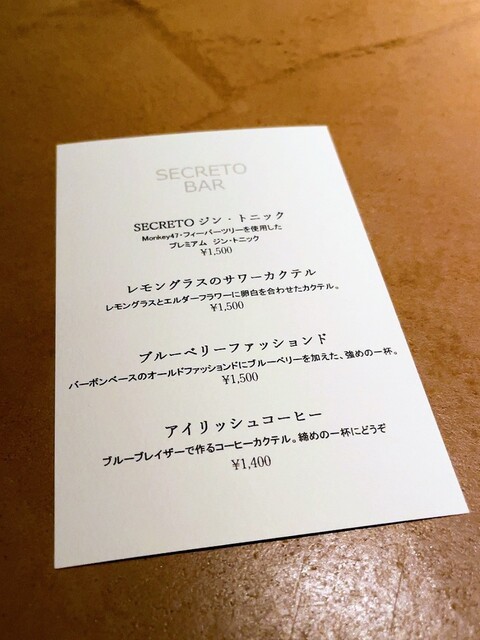 SECRETO
BAR
SECRETO ジン・トニック
Monkey47・フィーバーツリーを使用した
プレミアム ジン・トニック
¥1,500
レモングラスのサワーカクテル
レモングラスとエルダーフラワーに卵白を合わせたカクテル。
¥1,500
ブルーベリーファッションド
バーボンベースのオールドファッションドにブルーベリーを加えた、強めの一杯。
¥1,500
アイリッシュコーヒー
ブルーブレイザーで作るコーヒーカクテル。締めの一杯にどうぞ
¥1,400